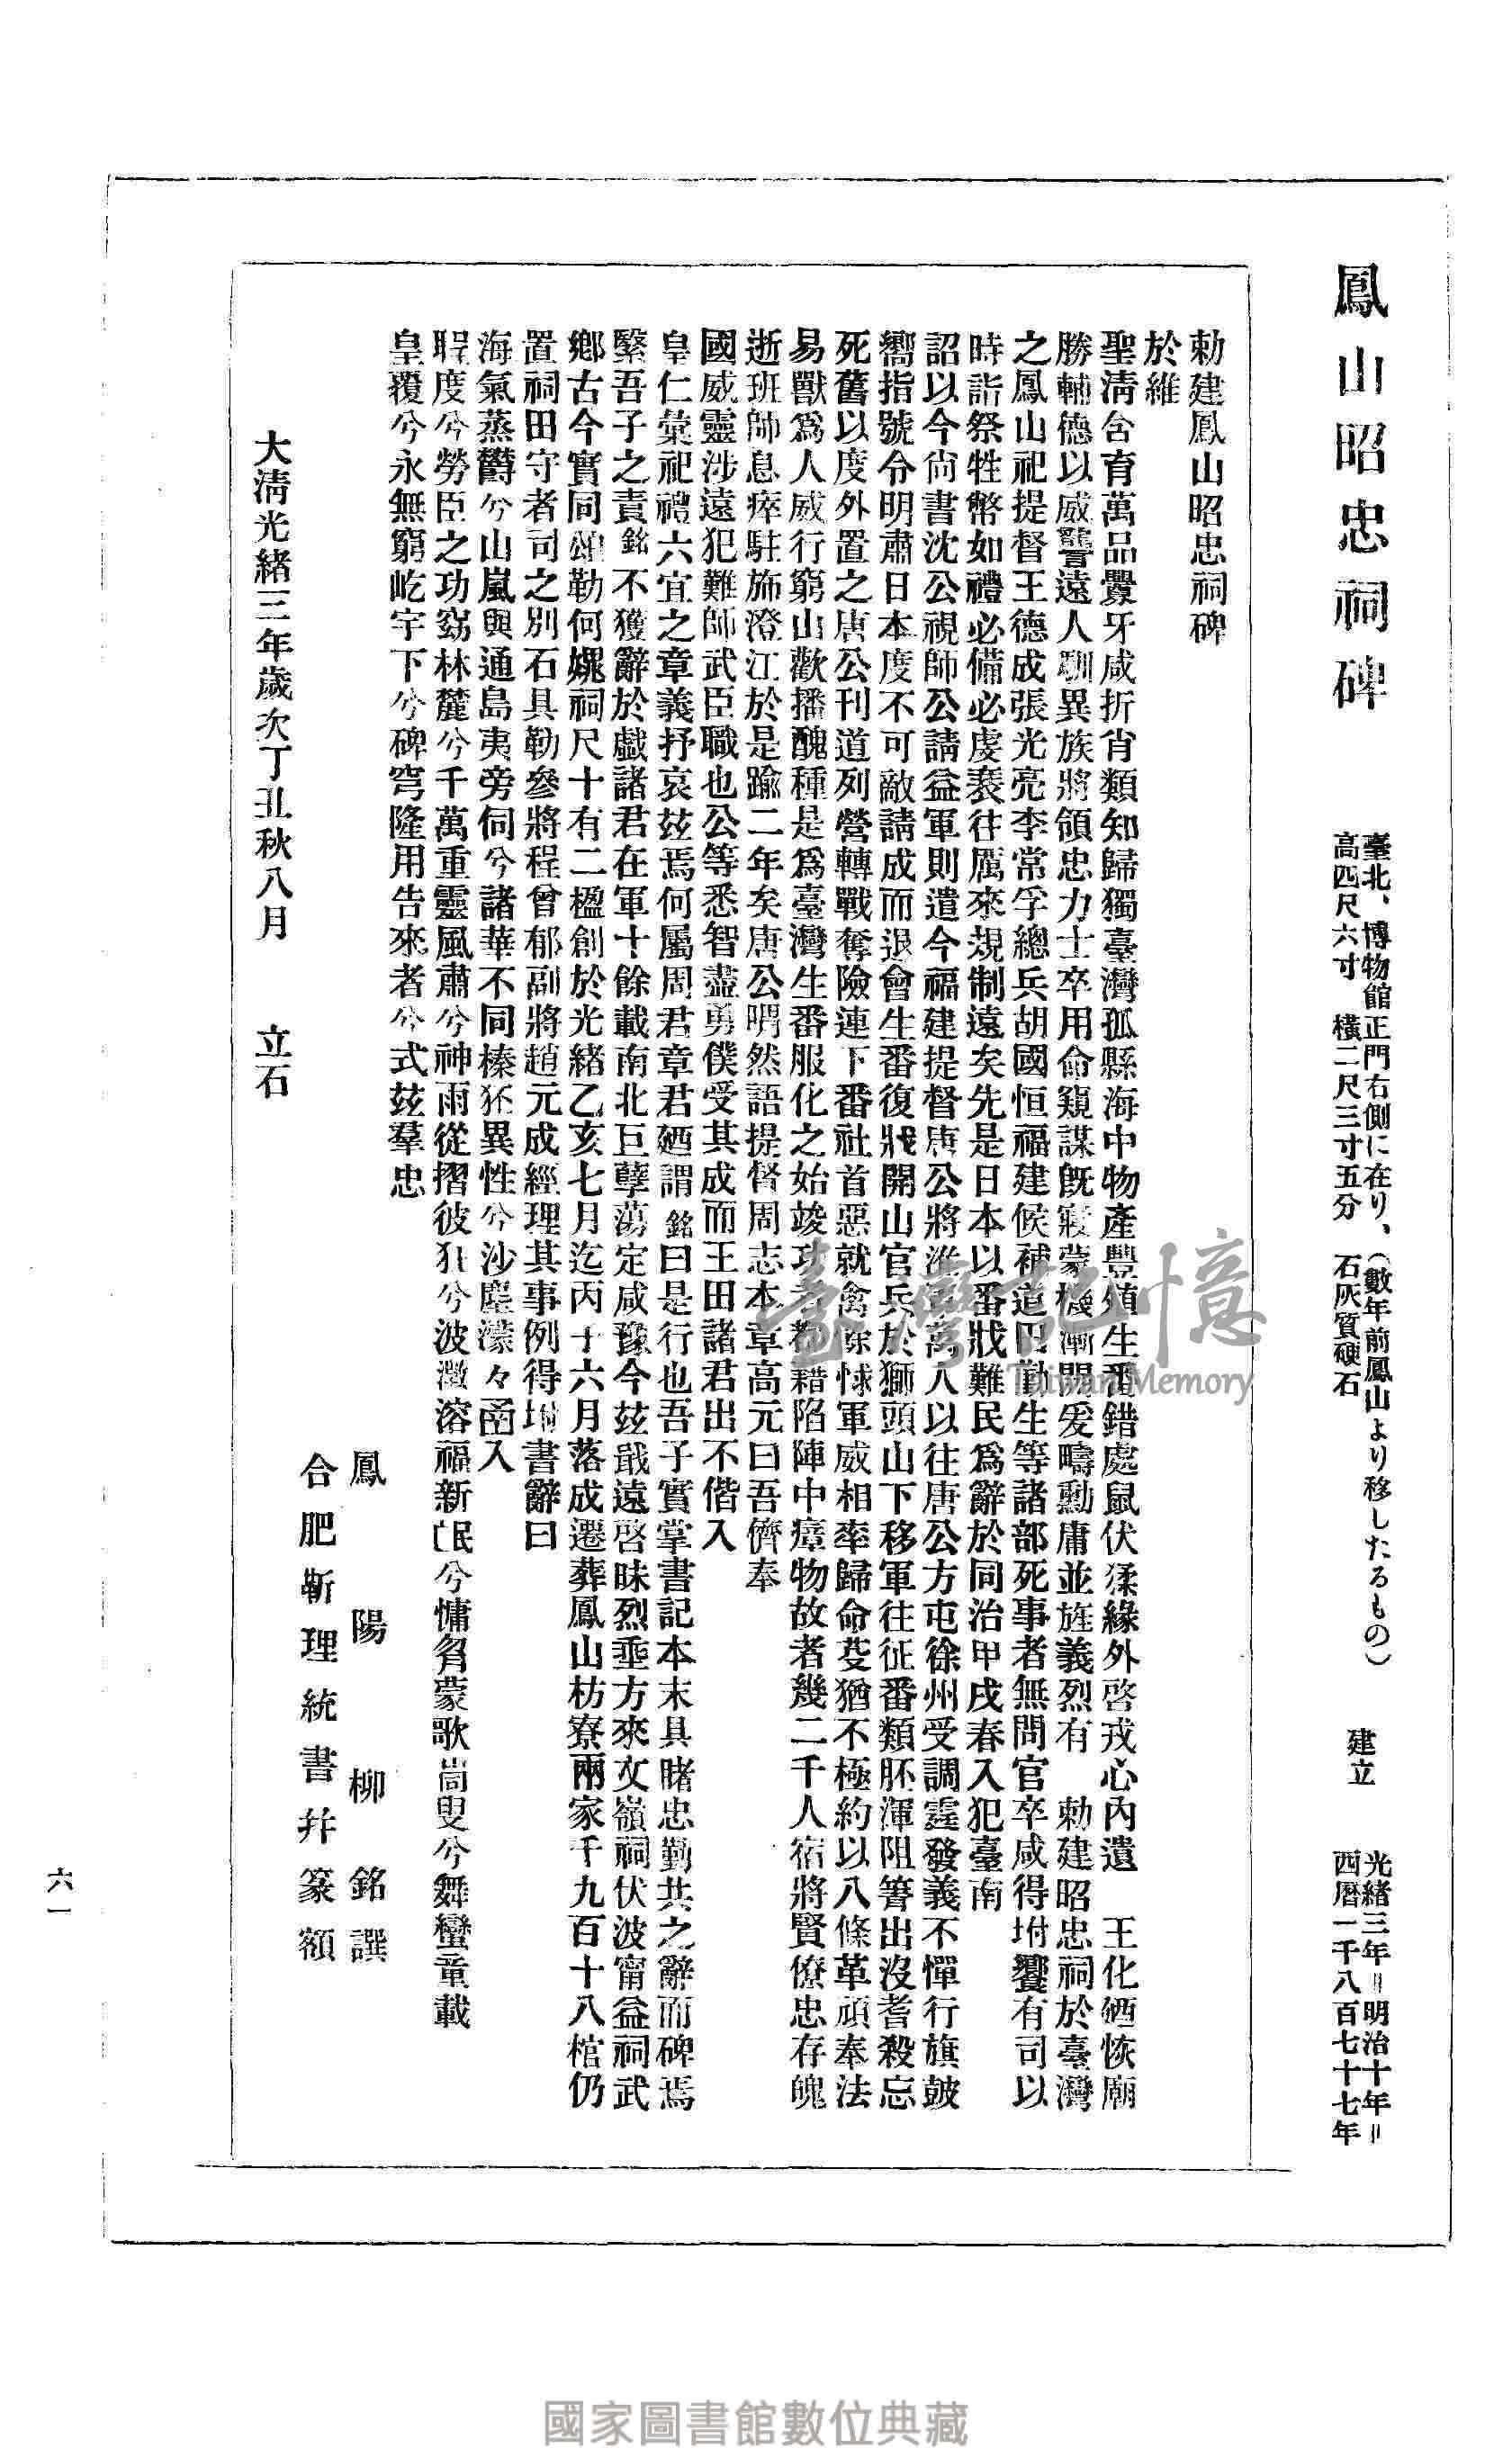 鳳山昭忠祠碑
臺北、博物館正門右側に在り、(數年前鳳山より移したるもの)
高四尺六寸 橫二尺三寸五分 石灰質硬石
建立
光緒三年＝明治十年＝
西曆一千八百七十七年
勅建鳳山昭忠祠碑
於維
聖清含育萬品釁牙咸折肖類知歸獨臺灣孤縣海中物產豐殖生番錯處鼠伏猱緣外啓戎心內遺 王化廼恢廟
勝輔德以威讋遠人馴異族將領忠力士卒用命窺謀旣寢蒙機漸闢爰疇勳庸並旌義烈有 勅建昭忠祠於臺灣
之鳳山祀提督王德成張光亮李常孚總兵胡國恒福建候補道田勤生等諸部死事者無問官卒咸得坿饗有司以
時詣祭牲幣如禮必備必虔裵往厲來規制遠矣先是日本以番戕難民爲辭於同治甲戌春入犯臺南
詔以今尙書沈公視師公請益軍則遣今福建提督唐公將淮軍萬人以往唐公方屯徐州受調霆發義不憚行旗皷
嚮指號令明肅日本度不可敵請成而退會生番復戕開山官兵於獅頭山下移軍往征番類胚渾阻箐出沒耆殺忘
死舊以度外置之唐公刊道列營轉戰奪險連下番社首惡就禽餘悚軍威相率歸命芟猶不極約以八條革頑奉法
易獸爲人威行窮山歡播醜種是爲臺灣生番服化之始竣功者都藉陷陣中瘴物故者幾二千人宿將賢僚忠存魄
逝班師息瘁駐施澄江於是踰二年矣唐公喟然語提督周志本章高元曰吾儕奉
國威靈涉遠犯難師武臣職也公等悉智盡勇僕受其成而王田諸君出不偕入
皇仁彙祀禮六宜之章義抒哀玆焉何屬周君章君廼謂銘曰是行也吾子實掌書記本末具睹忠勤共之辭而碑焉
繄吾子之責銘不獲辭於戱諸君在軍十餘載南北巨孽蕩定咸豫今玆戢遠啓昧烈垂方來文嶺祠伏波甯益祠武
鄕古今實同頌勒何媿祠尺十有二楹創於光緒乙亥七月迄丙子六月落成遷葬鳳山枋寮兩家千九百十八棺仍
置祠田守者司之別石具勒參將程曾郁副將趙元成經理其事例得坿書辭曰
海氣蒸欝兮山嵐與通島夷旁伺兮諸華不同榛狉異性兮沙塵濛々函入
珵度兮勞臣之功窈林麓兮千萬重靈風肅兮神雨從摺彼狂兮波澂溶福新氓兮慵芻蒙歌嵓叟兮舞蠻童載
皇覆兮永無窮屹宇下兮碑穹隆用告來者兮式玆羣忠
鳳陽柳銘譔
合肥靳理統書幷篆額
大淸光緒三年歲次丁丑秋八月 立石
六一
臺灣記憶
Taiwan Memory
國家圖書館數位典藏